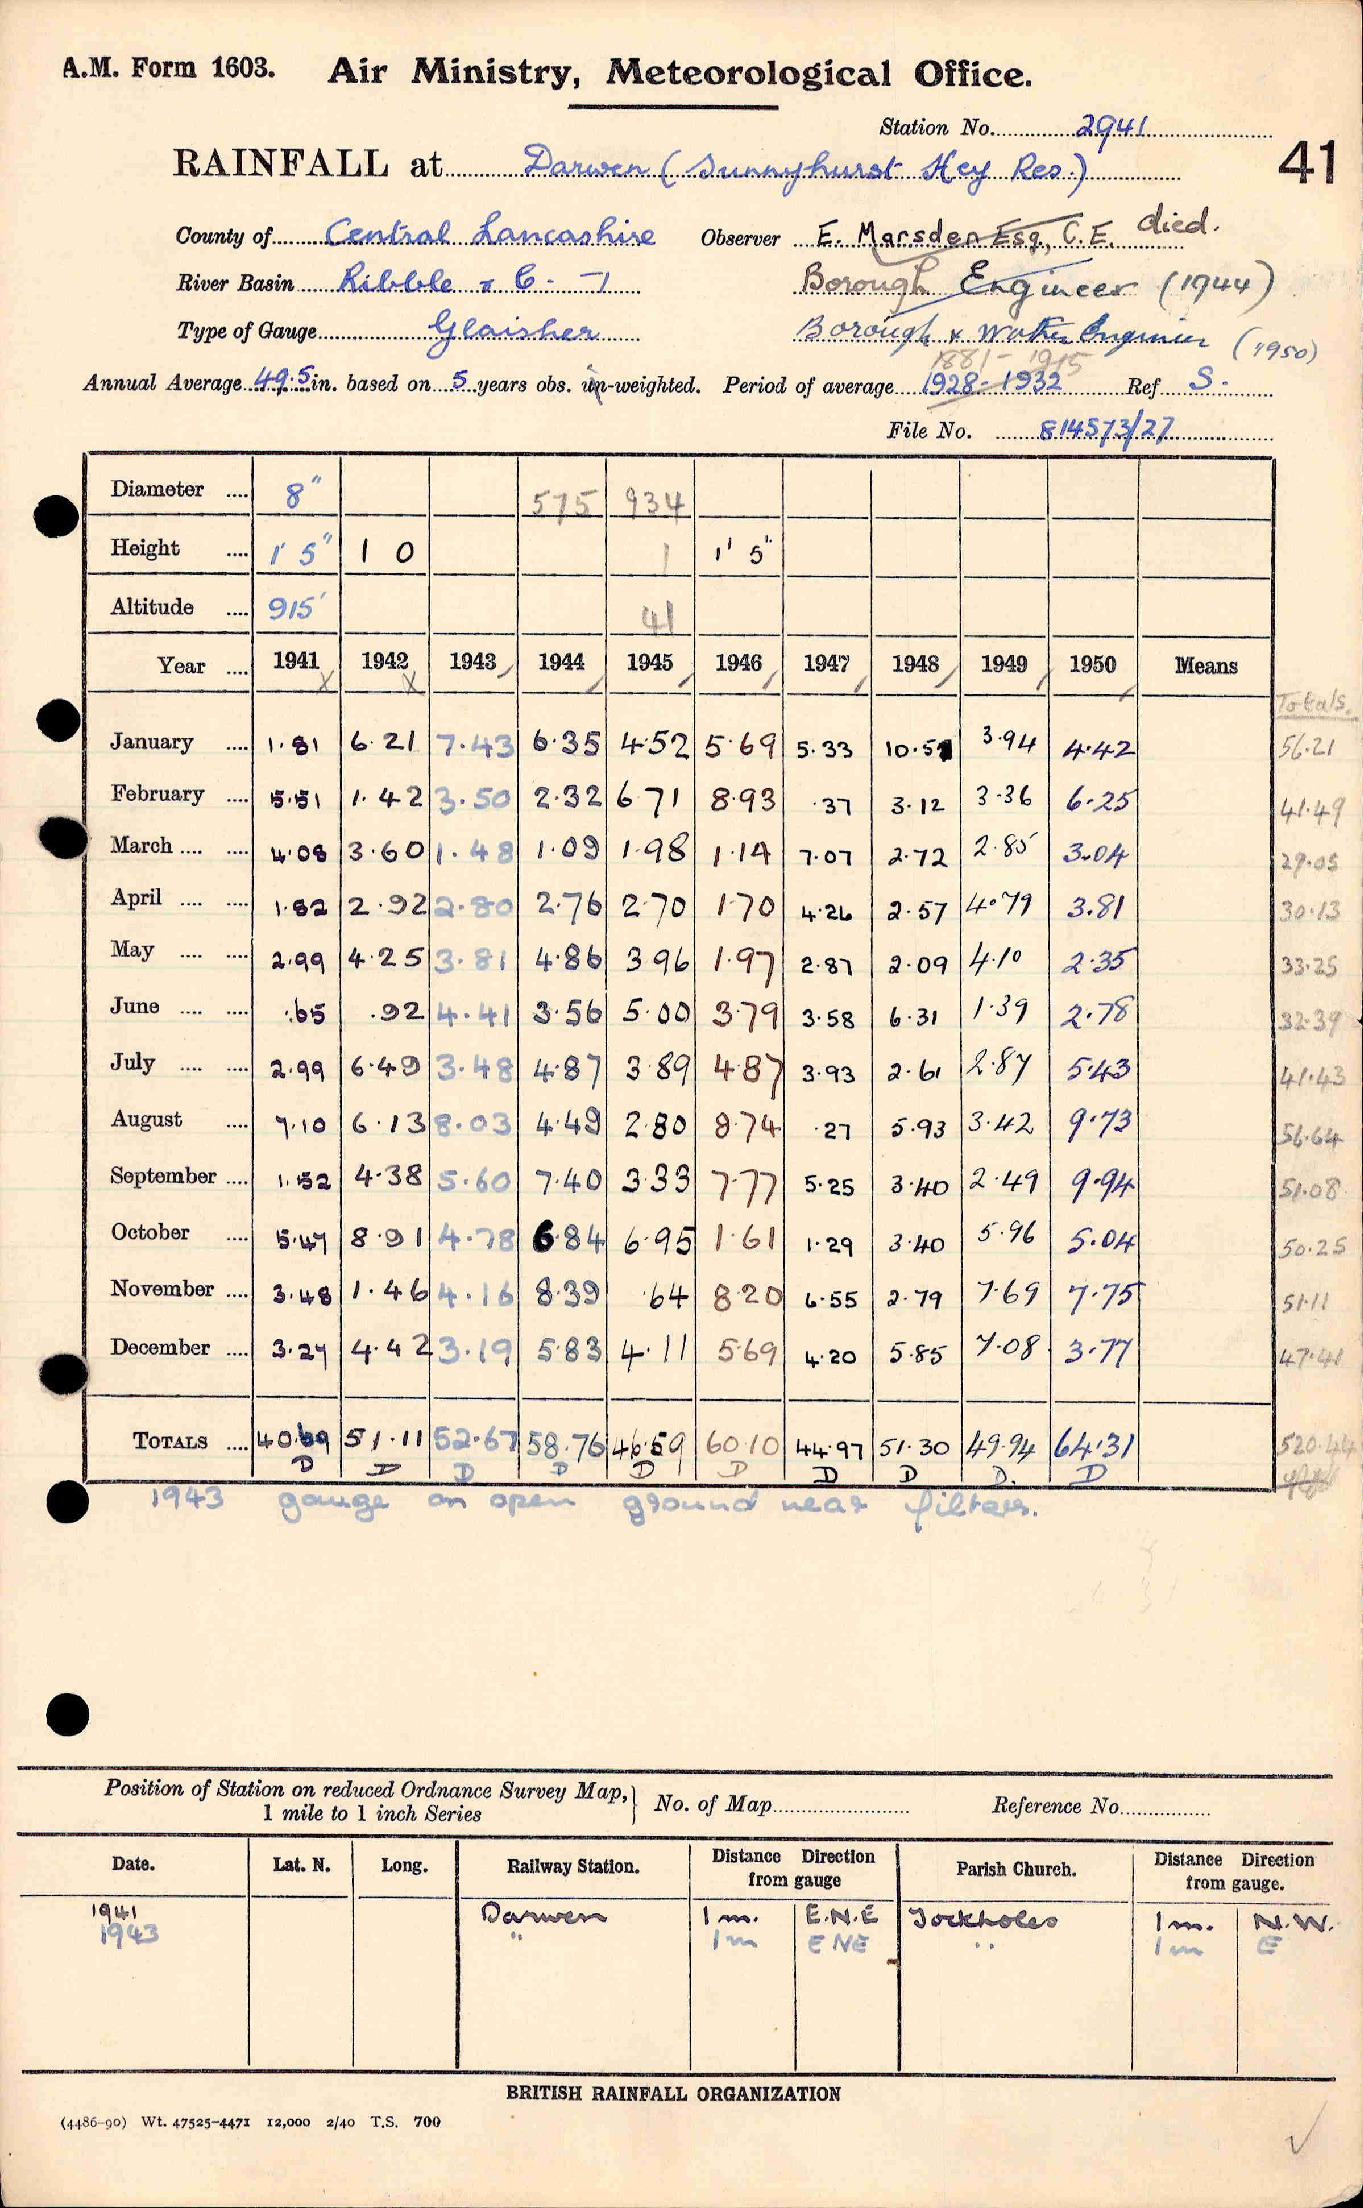 A.M. Form 1603. Air Ministry, Meteorological Office.
Station No. 2941
41
RAINFALL at Darwen (Sunnyhurst Hey Res.)
County of Central Lancashire Observer E. Marsden Esq., C.E. died.
River Basin Ribble & C. - 7 Borough Engineer (1944)
Type of Gauge Glaisher Borough & Water Engineer (1950)
1881-1915
Annual Average 49.5 in. based on 5 years obs. un-weighted. Period of average 1928-1932 Ref S.
File No. 814573/27
Diameter .... 8" 575 934
Height .... 1' 5" 1 0 1 1' 5"
Altitude .... 915' 41
Year .... 1941 1942 1943 1944 1945 1946 1947 1948 1949 1950 Means
x x
Totals.
January .... 1.81 6.21 7.43 6.35 4.52 5.69 5.33 10.51 3.94 4.42 56.21
February .... 5.51 1.42 3.50 2.32 6.71 8.93 .37 3.12 3.36 6.25 41.49
March .... .... 4.08 3.60 1.48 1.09 1.98 1.14 7.07 2.72 2.85 3.04 29.05
April .... .... 1.82 2.92 2.80 2.76 2.70 1.70 4.26 2.57 4.79 3.81 30.13
May .... .... 2.99 4.25 3.81 4.86 3.96 1.97 2.87 2.09 4.10 2.35 33.25
June .... .... .65 .92 4.41 3.56 5.00 3.79 3.58 6.31 1.39 2.78 32.39
July .... .... 2.99 6.49 3.48 4.87 3.89 4.87 3.93 2.61 2.87 5.43 41.43
August .... 7.10 6.13 8.03 4.49 2.80 8.74 .27 5.93 3.42 9.73 56.64
September .... 1.52 4.38 5.60 7.40 3.33 7.77 5.25 3.40 2.49 9.94 51.08
October .... 5.47 8.91 4.78 6.84 6.95 1.61 1.29 3.40 5.96 5.04 50.25
November .... 3.48 1.46 4.16 8.39 .64 8.20 6.55 2.79 7.69 7.75 51.11
December .... 3.27 4.42 3.19 5.83 4.11 5.69 4.20 5.85 7.08 3.77 47.41
TOTALS .... 40.69 51.11 52.67 58.76 46.59 60.10 44.97 51.30 49.94 64.31 520.44
D D D D D D D D D. D
1943 gauge on open ground near filters.
Position of Station on reduced Ordnance Survey Map, 1 mile to 1 inch Series } No. of Map Reference No.
Date. Lat. N. Long. Railway Station. Distance Direction from gauge Parish Church. Distance Direction from gauge.
1941 Darwen 1 m. E.N.E Tockholes 1 m. N.W.
1943 " 1 m ENE " 1 m E
BRITISH RAINFALL ORGANIZATION
(4486-90) Wt. 47525-4471 12,000 2/40 T.S. 700